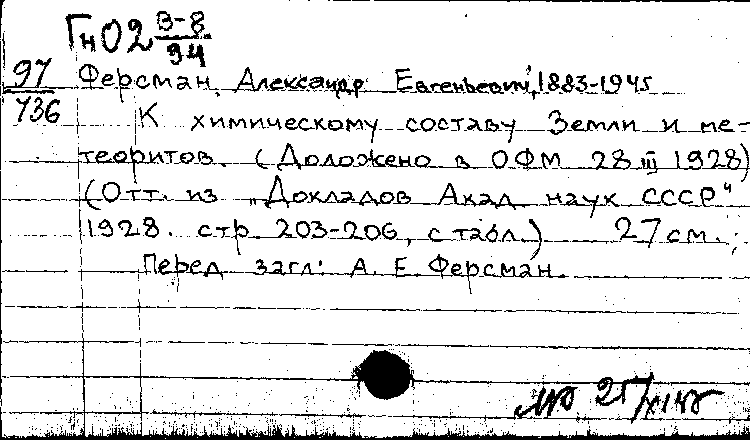 Гн02 В-8/94
97/736
Ферсман, Александр Евгеньевич, 1883-1945
К химическому составу Земли и ме-
теоритов. (Доложено в ОФМ 28 III 1928)
(Отт. из „Докладов Акад. наук СССР"
1928. стр. 203-206, с табл.) 27 см.
Перед загл: А. Е. Ферсман.